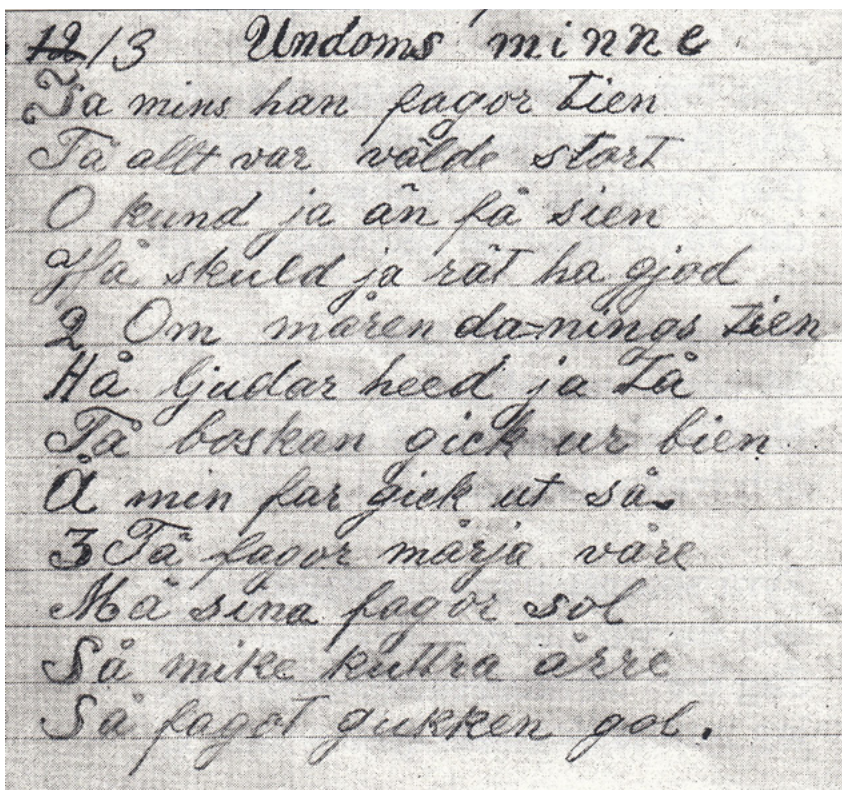 13 Undoms minne
Ja mins han fagor tien
Tå allt var välde stort
O kund ja än få sien
Hå skuld ja rät ha gjod
2 Om måren da=nings tien
Hå ljudar heed ja Tå
Tå boskan gick ur bien
Å min far gick ut så.
3 Tå fagor mårja våre
Mä sina fagor sol
Så mike kuttra årre
Så fagot gukken gol.